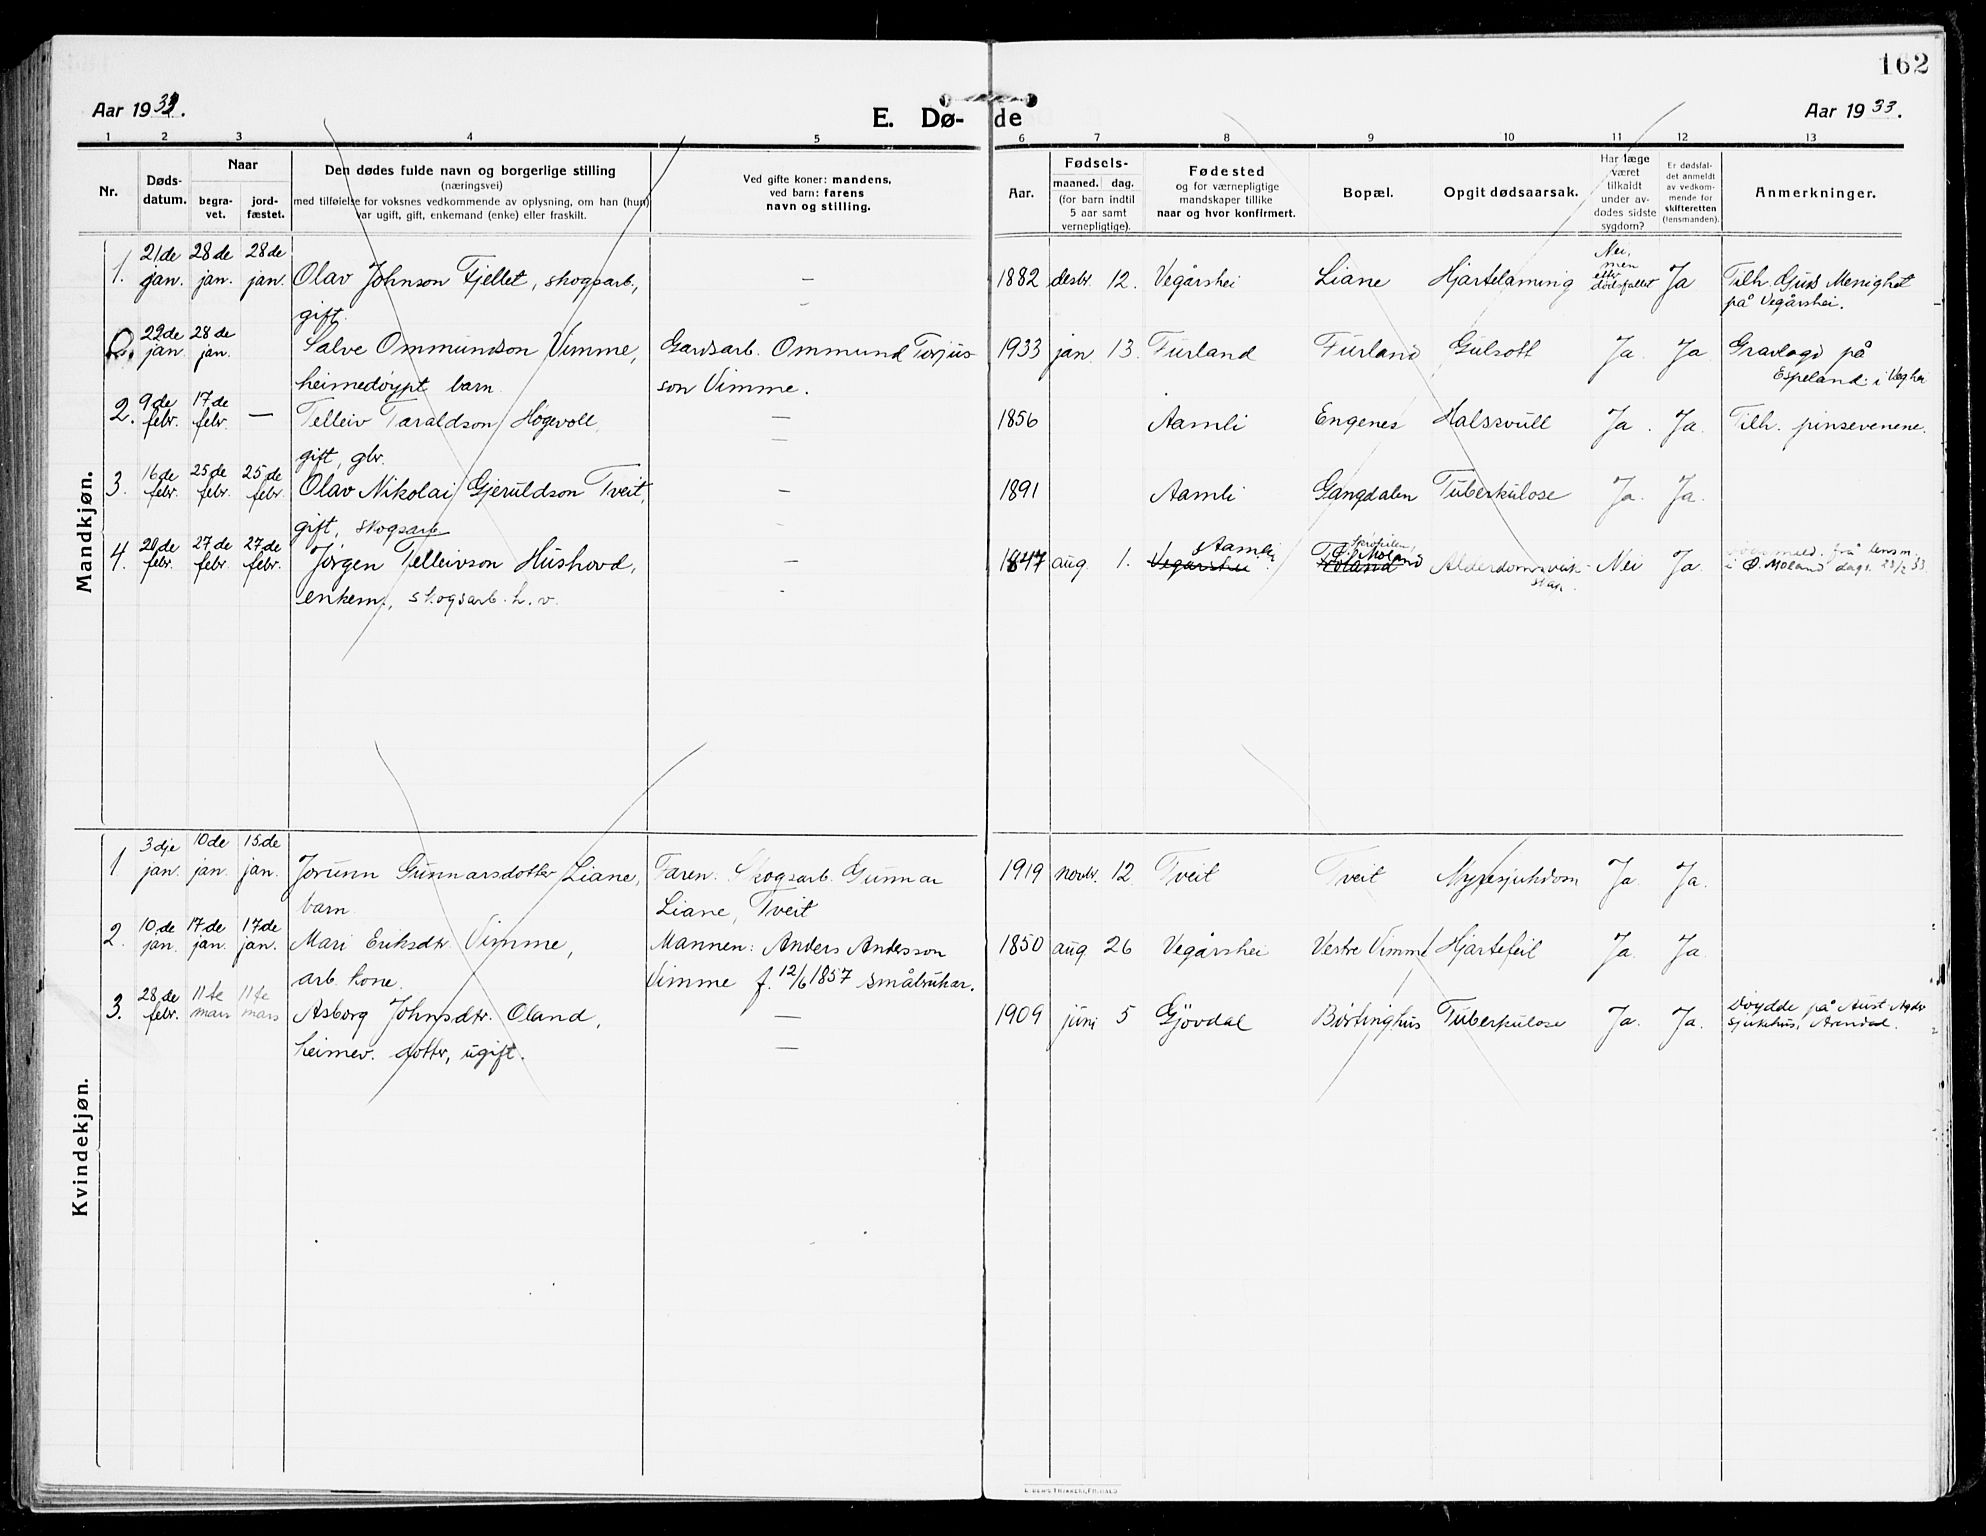 162
Aar 1933.
E. Dø- de
Aar 1933.
1 2 3 4 5 6 7 8 9 10 11 12 13
Nr.
Døds-
datum.
Naar
begra-
vet.
jord-
fæstet.
Den dødes fulde navn og borgerlige stilling
(næringsvei)
med tilføielse for voksnes vedkommende av oplysning, om han (hun)
var ugift, gift, enkemand (enke) eller fraskilt.
Ved gifte koner: mandens,
ved barn: farens
navn og stilling.
Aar.
Fødsels-
maaned. dag.
(for barn indtil
5 aar samt
vernepligtige).
Fødested
og for værnepligtige
mandskaper tillike
naar og hvor konfirmert.
Bopæl.
Opgit dødsaarsak.
Har læge
været
tilkaldt
under av-
dødes sidste
sygdom?
Er dødsfal-
det anmeldt
av vedkom-
mende for
skifteretten
(lensmanden).
Anmerkninger.
Mandkjøn.
1. 21de jan. 28de jan. 28de jan. Olav Johnson Fjellet, skogsarb., — 1882 desbr. 12. Vegårshei Liane Hjartelaming Nei, men etter dødsfallet Ja Tilh. Guds Menighet
gift. på Vegårshei.
22de jan. 28de jan. Salve Ommundson Vimme, Gardsarb. Ommund Torjus- 1933 jan. 13. Furland Furland Gulsott Ja. Ja Gravlagd på
heimedøypt barn. son Vimme. Espeland i Veghei
2. 9de febr. 17de febr. — Telleiv Taraldson Høgevoll, — 1856 Aamli Engenes Halssvull Ja. Ja. Tilh. pinsevenene.
gift, gbr.
3. 16de febr. 25de febr. 25de febr. Olav Nikolai Gjeruldson Tveit, — 1891 Aamli Gangdalen Tuberkulose Ja. Ja.
gift, skogsarb.
4. 20de febr. 27de febr. 27de febr. Jørgen Telleivson Hushovd, — 1847 aug. 1. Vegårshei Aamli Ø. Moland Alderdomssvik- Nei Ja. frå lensm.
enkem., skogsarb. h. v. skap. i Ø. Moland dags. 23/2 33
Kvindekjøn.
1 3dje jan. 10de jan. 15de jan. Jorunn Gunnarsdotter Liane, Faren: Skogsarb. Gunnar 1919 novbr. 12. Tveit Tveit Nyresjukdom Ja. Ja.
barn. Liane, Tveit
2. 10.de jan. 17de jan. 17de jan. Mari Eriksdtr. Vimme, Mannen: Anders Andersson 1850 aug 26 Vegårshei Vestre Vimme Hjartefeil Ja. Ja.
arb. kone. Vimme f. 12/6 1857 småbrukar.
3. 28de febr. 11te mars 11te mars Asborg Johnsdtr. Øland, — 1909 juni 5 Gjøvdal Børtinghus Tuberkulose Ja. Ja. Døydde på Aust-Agder
heimev. dotter, ugift. — sjukehus, Arendal.